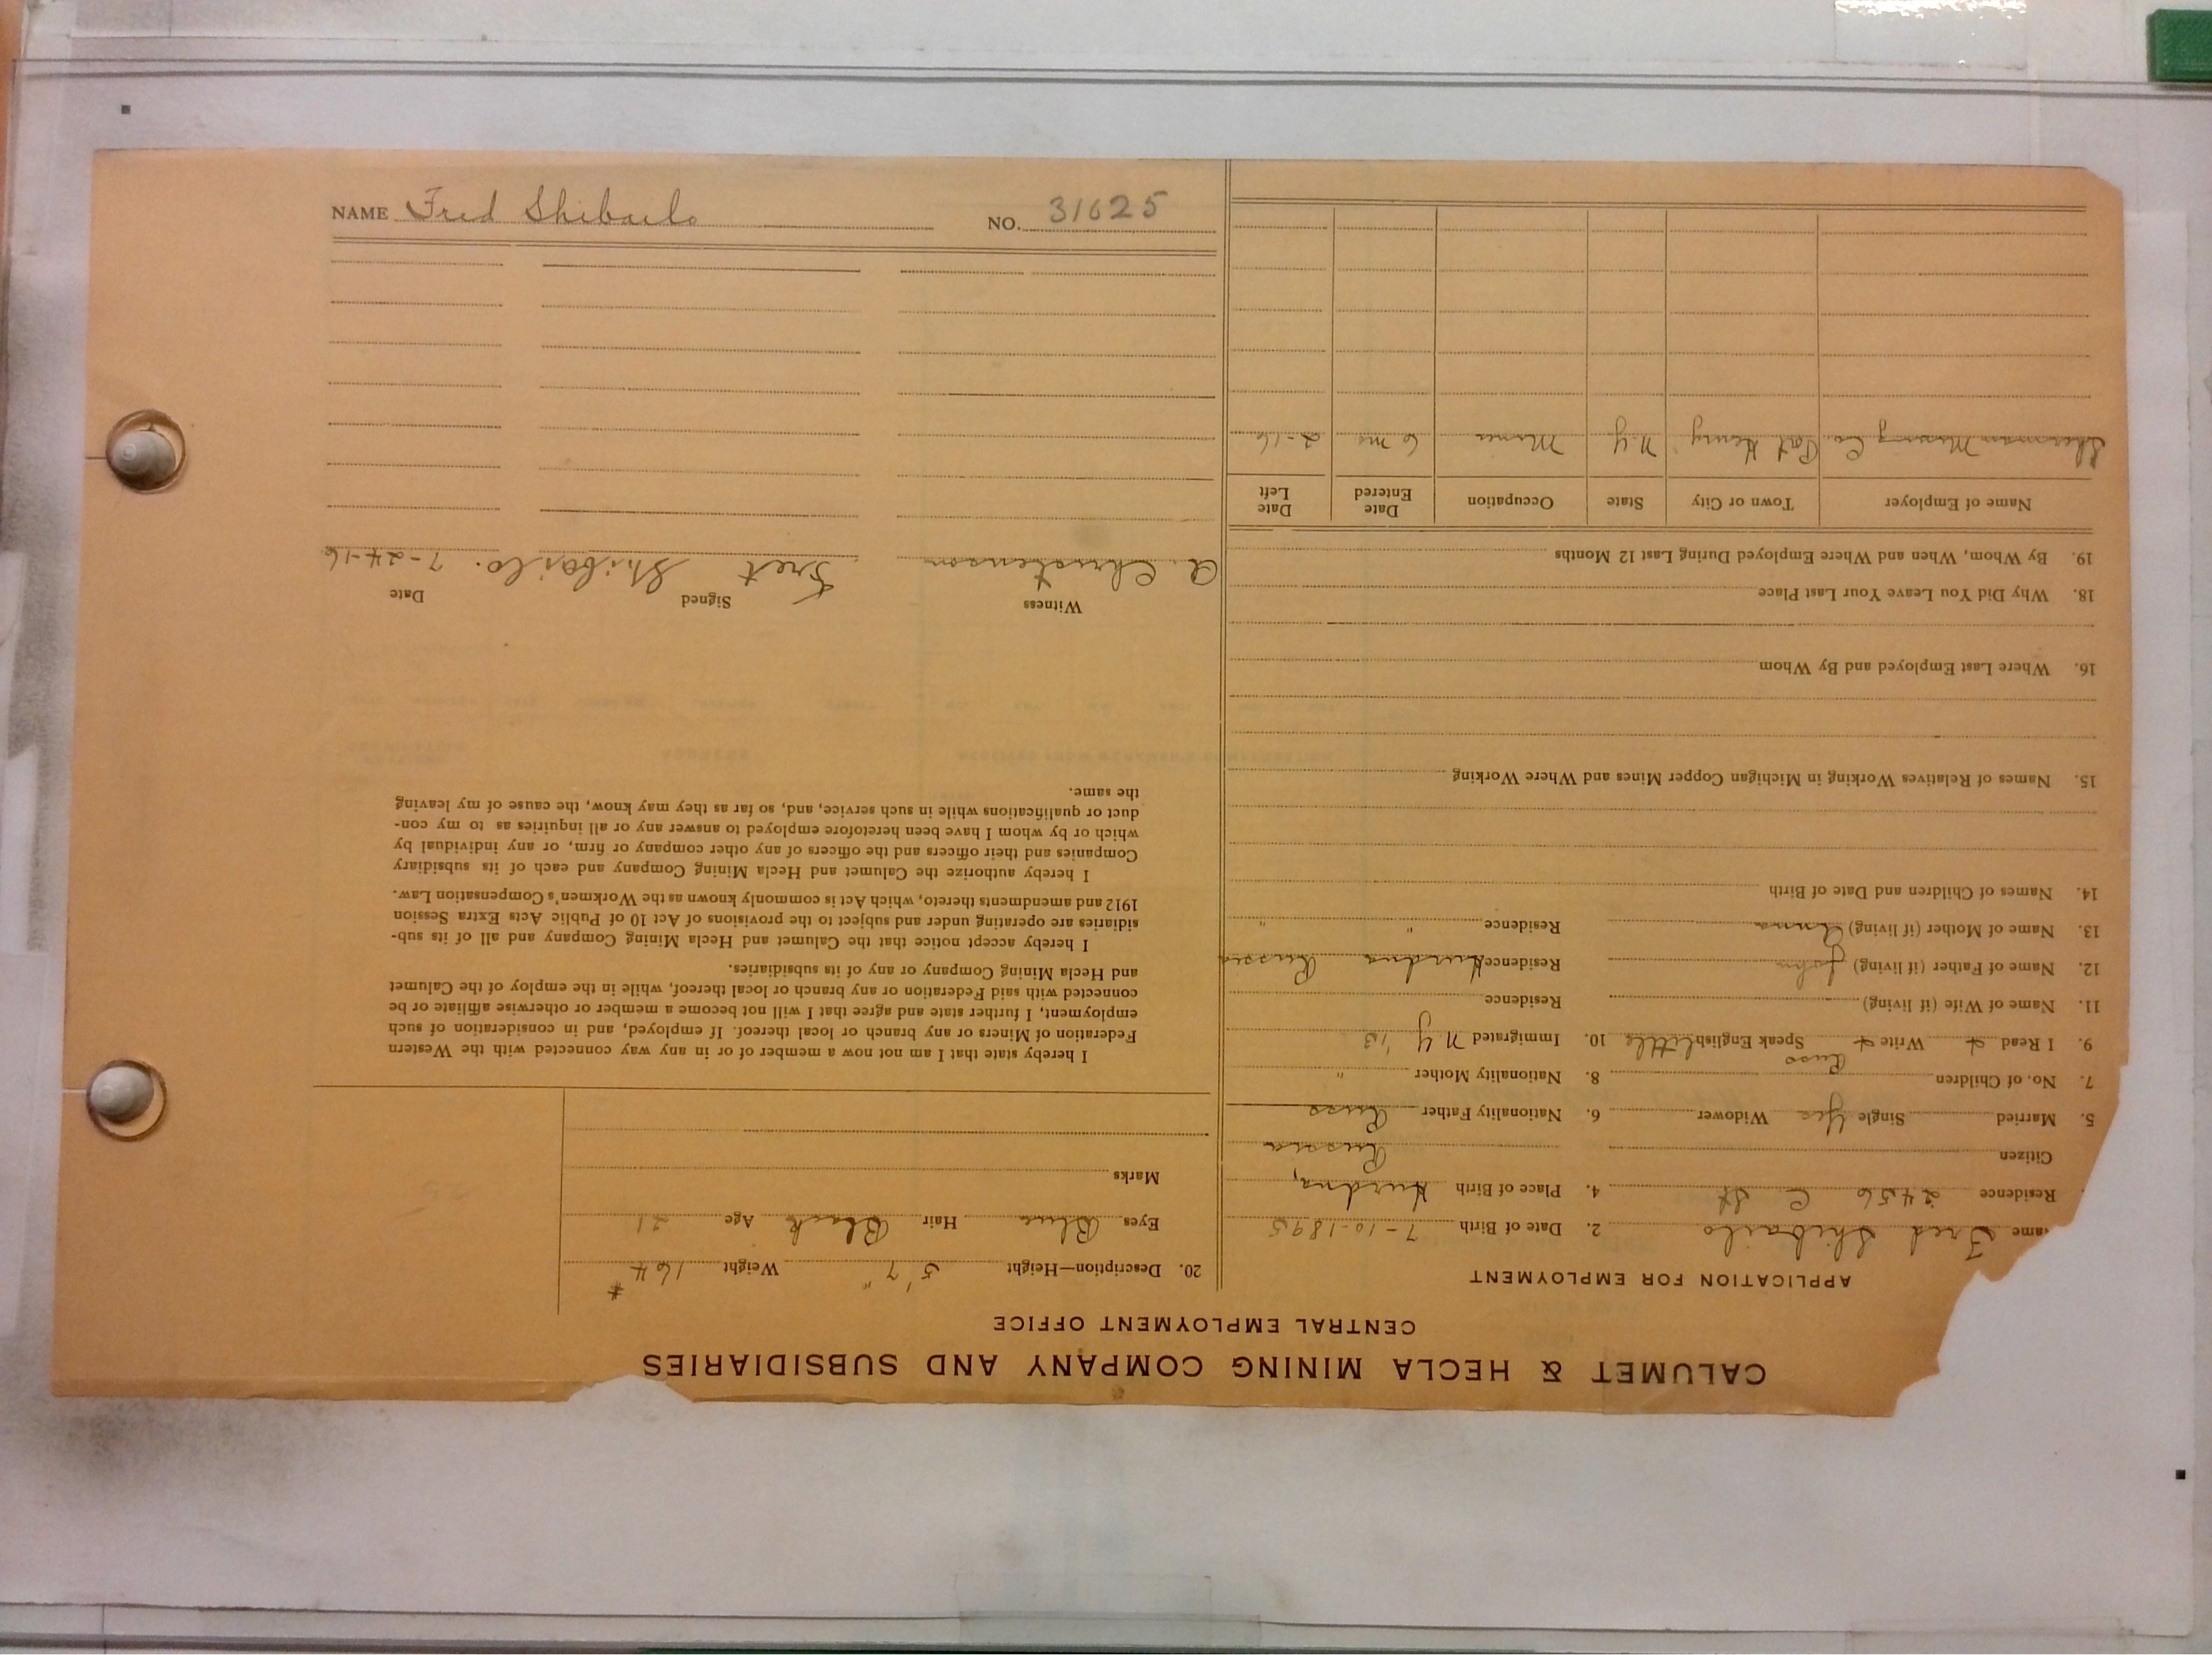 NAME Fred Shibailo NO. 31625
CALUMET & HECLA MINING COMPANY AND SUBSIDIARIES
CENTRAL EMPLOYMENT OFFICE
APPLICATION FOR EMPLOYMENT
ame Fred Shibailo 2. Date of Birth 7-10-1895
Residence 2456 C St 4. Place of Birth Hurdna,
Citizen Russia
5. Married Single Yes Widower 6. Nationality Father Russ
7. No. of Children 8. Nationality Mother "
9. I Read Write Speak English little 10. Immigrated N Y '13
Russ
11. Name of Wife (if living) Residence
12. Name of Father (if living) John Residence Hurdna Russia
13. Name of Mother (if living) Anna Residence " "
14. Names of Children and Date of Birth
15. Names of Relatives Working in Michigan Copper Mines and Where Working
16. Where Last Employed and By Whom
18. Why Did You Leave Your Last Place
19. By Whom, When and Where Employed During Last 12 Months
Name of Employer Town or City State Occupation Date Entered Date Left
Sherman Mining Co. Port Henry N.Y Miner 6 ms 2-16
20. Description—Height 5' 7" Weight 164 #
Eyes Blue Hair Black Age 21
Marks
I hereby state that I am not now a member of or in any way connected with the Western
Federation of Miners or any branch or local thereof. If employed, and in consideration of such
employment, I further state and agree that I will not become a member or otherwise affiliate or be
connected with said Federation or any branch or local thereof, while in the employ of the Calumet
and Hecla Mining Company or any of its subsidiaries.
I hereby accept notice that the Calumet and Hecla Mining Company and all of its sub-
sidiaries are operating under and subject to the provisions of Act 10 of Public Acts Extra Session
1912 and amendments thereto, which Act is commonly known as the Workmen's Compensation Law.
I hereby authorize the Calumet and Hecla Mining Company and each of its subsidiary
Companies and their officers and the officers of any other company or firm, or any individual by
which or by whom I have been heretofore employed to answer any or all inquiries as to my con-
duct or qualifications while in such service, and, so far as they may know, the cause of my leaving
the same.
Witness Signed Date
A. Christenson Fret Shibailo. 7-24-16